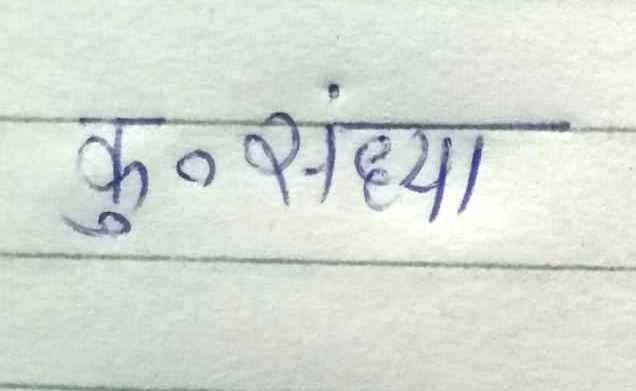 कु० संध्या